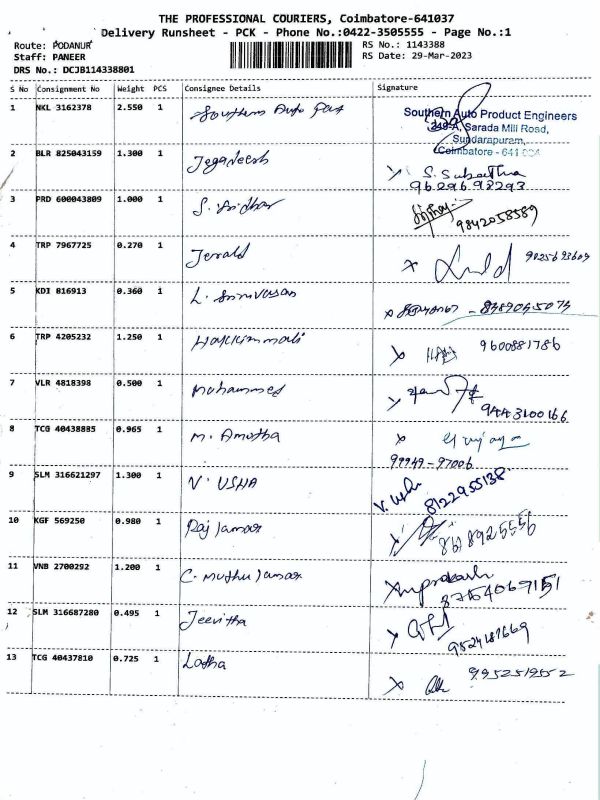 THE PROFESSIONAL COURIERS, Coimbatore-641037
Delivery Runsheet - PCK - Phone No.:0422-3505555 - Page No.:1
Route: PODANUR
RS No.: 1143388
Staff: PANEER
RS Date: 29-Mar-2023
DRS No.: DCJB114338801
S No Consignment No Weight PCS Consignee Details Signature
1 NKL 3162378 2.550 1 Southern Auto
Southern Auto Product Engineers
249-A, Sarada Mill Road,
Sundarapuram,
Coimbatore - 641 024
2 BLR 825043159 1.300 1 Jegadeesh
9629698293
3 PRD 600043809 1.000 1 S. Sridhar
9842058589
4 TRP 7967725 0.270 1 Jerald
9025693609
5 KDI 816913 0.360 1 L. Srinivasan
6 TRP 4205232 1.250 1 Hakkimmali
9600881786
7 VLR 4818398 0.500 1 Mohammed
9443100166
8 TCG 40438885 0.965 1 M. Amutha
99949-97006
9 SLM 316621297 1.300 1 V. USHA
V. Usha 8122955138
10 KGF 569250 0.980 1
11 VNB 2700292 1.200 1
12 SLM 316687280 0.495 1 Jeevitha
13 TCG 40437810 0.725 1 Latha
9952519552